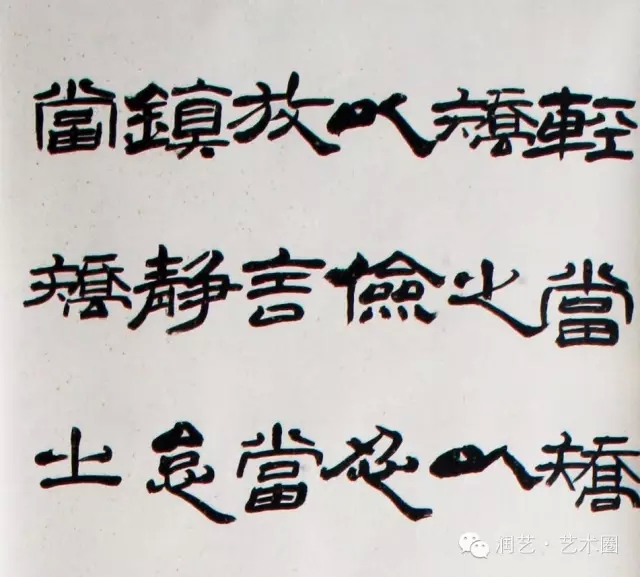 輕當矯
矯之以
以儉忍
放言當
鎮靜怠
當矯之
润艺·艺术圈